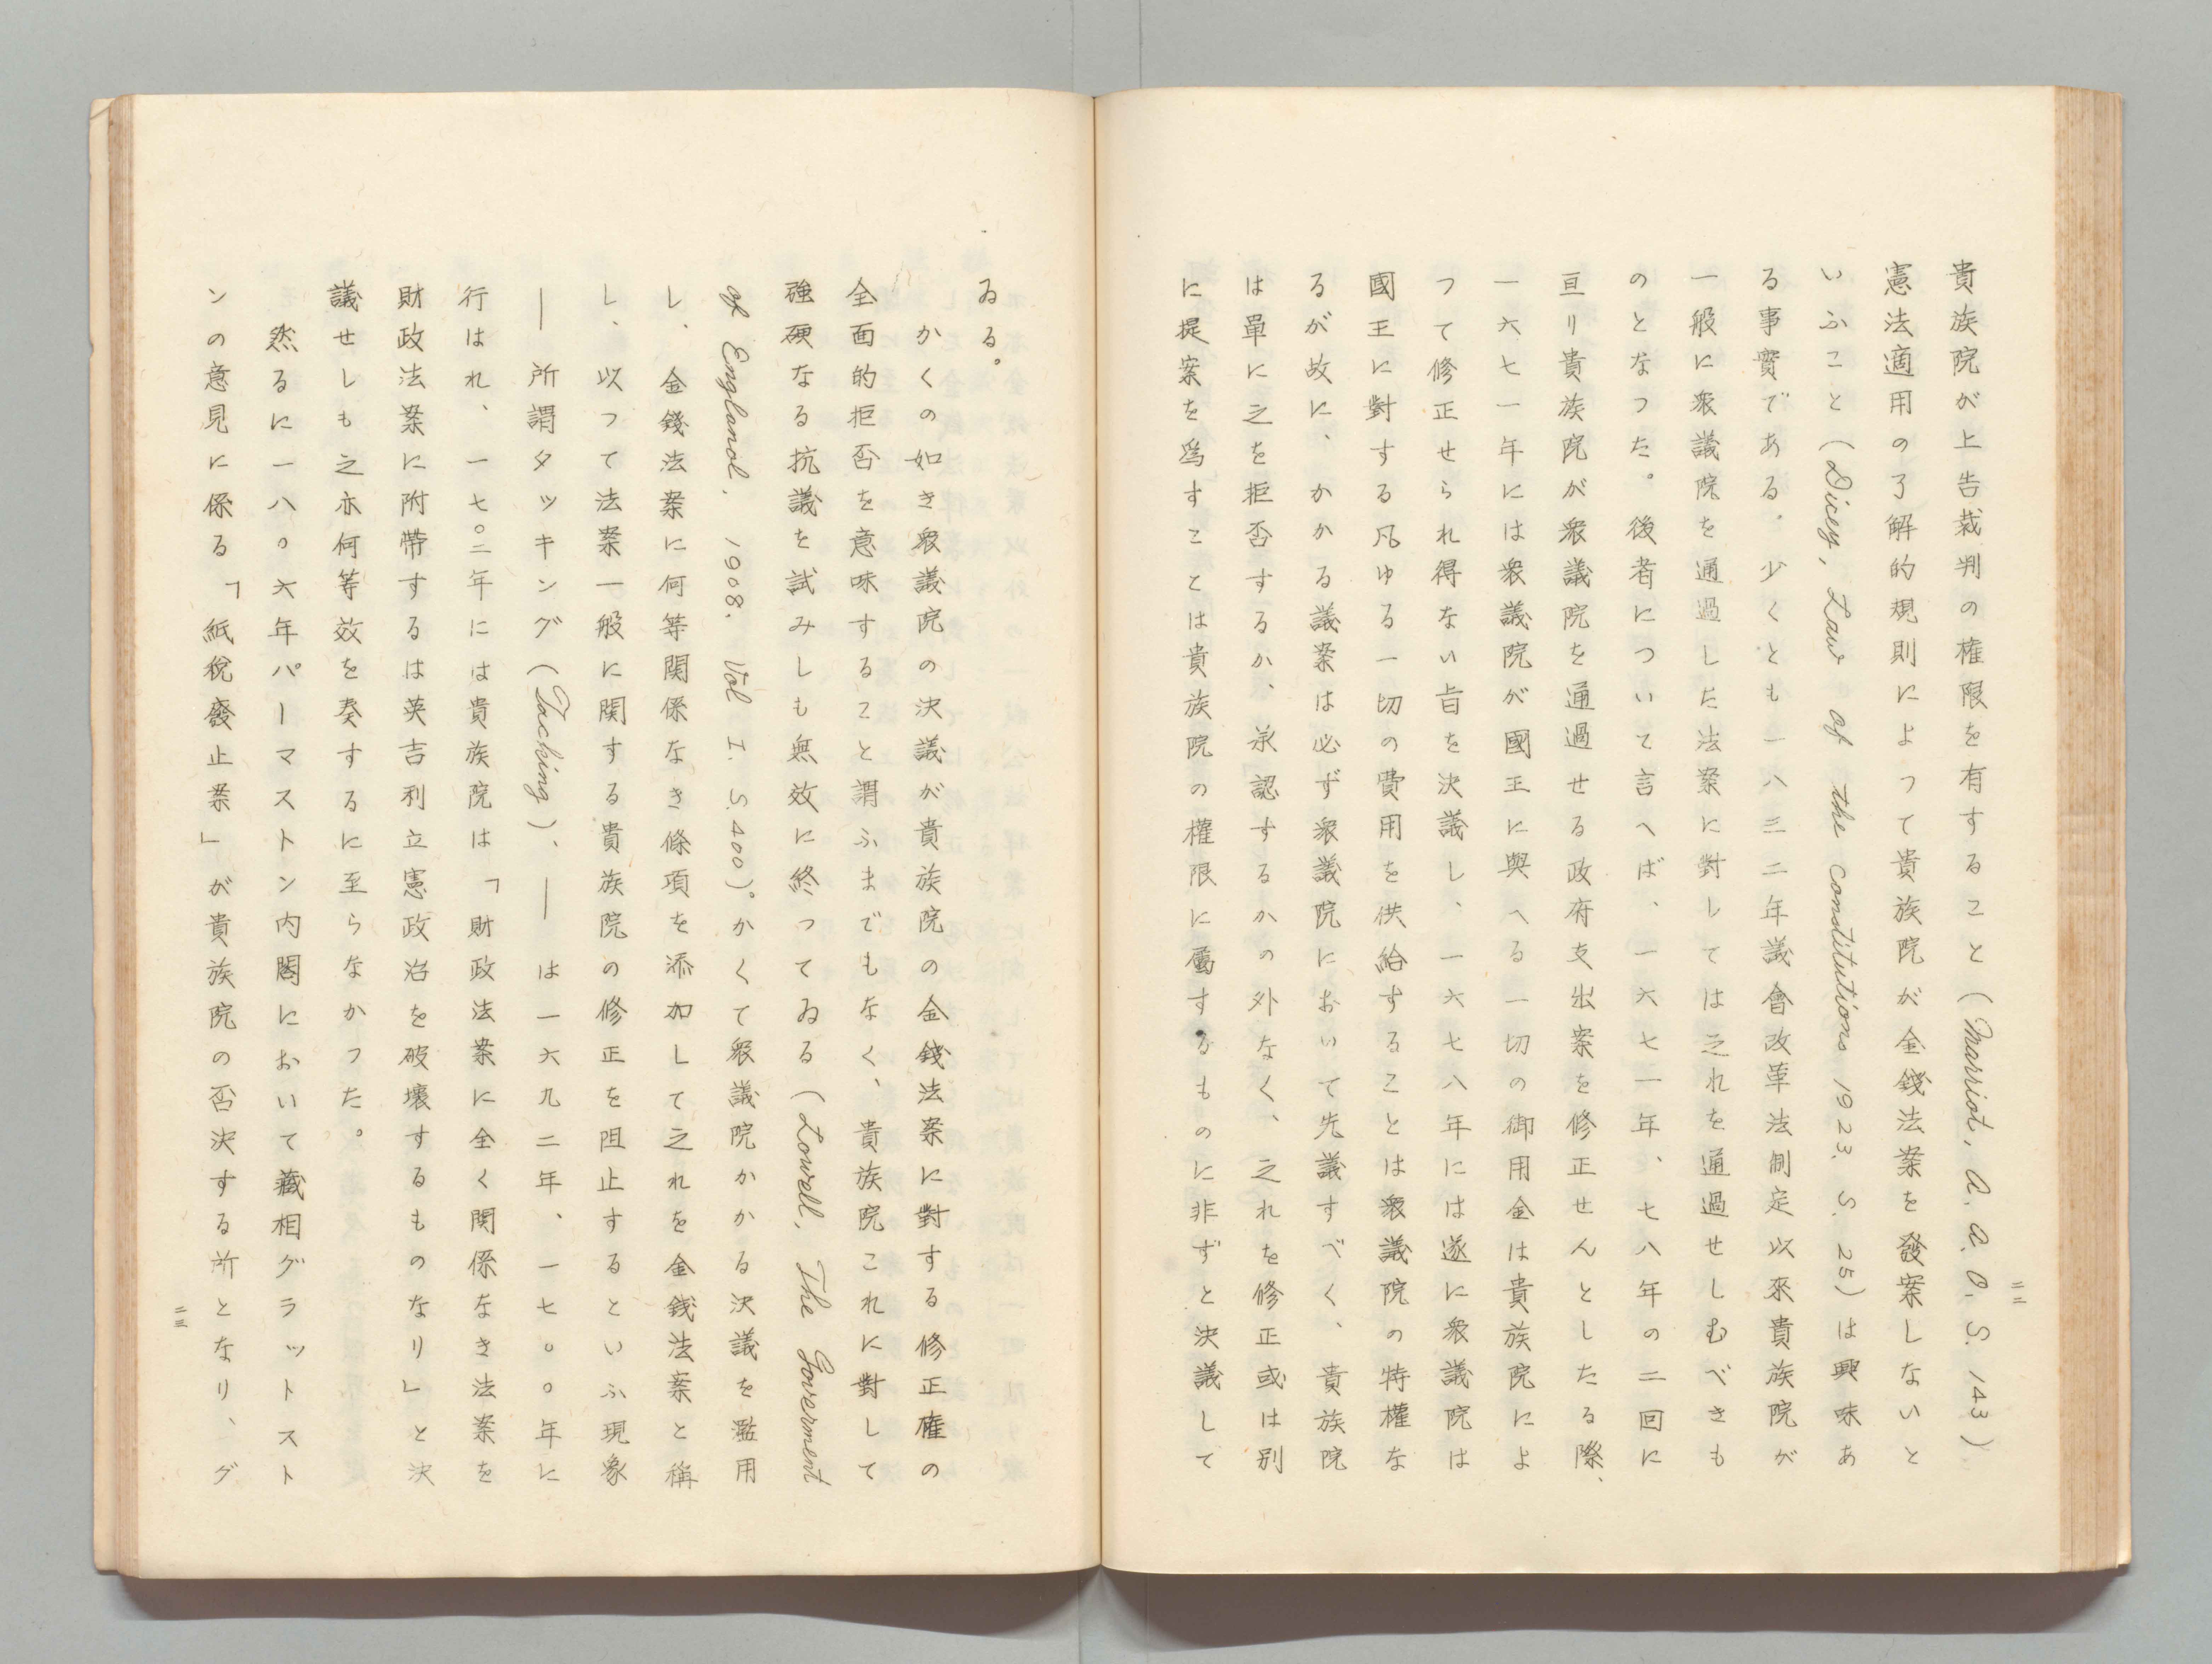 貴族院が上告裁判の權限を有すること(Marriot, a. a. O. S. 143)
憲法適用の了解的規則によつて貴族院が金錢法案を發案しないと
いふこと(Dicey, Law of the constitutions 1923. S. 25)は興味あ
る事實である。少くとも一八三二年議會改革法制定以來貴族院が
一般に衆議院を通過した法案に對しては之れを通過せしむべきも
のとなつた。後者について言へば、一六七一年、七八年の二回に
亘り貴族院が衆議院を通過せる政府支出案を修正せんとしたる際、
一六七一年には衆議院が國王に與へる一切の御用金は貴族院によ
つて修正せられ得ない旨を決議し、一六七八年には遂に衆議院は
國王に對する凡ゆる一切の費用を供給することは衆議院の特權な
るが故に、かかる議案は必ず衆議院において先議すべく、貴族院
は單に之を拒否するか、承認するかの外なく、之れを修正或は別
に提案を爲すことは貴族院の權限に屬するものに非ずと決議して
二二
ゐる。
かくの如き衆議院の決議が貴族院の金錢法案に對する修正權の
全面的拒否を意味すること謂ふまでもなく、貴族院これに對して
強硬なる抗議を試みしも無效に終つてゐる(Lowell, The Goverment
of England. 1908. Vol I. S.400)。かくて衆議院かかる決議を濫用
し、金錢法案に何等関係なき條項を添加して之れを金錢法案と稱
し、以つて法案一般に関する貴族院の修正を阻止するといふ現象
―所謂タッキング(Tacking)、―は一六九二年、一七〇〇年に
行はれ、一七〇二年には貴族院は「財政法案に全く関係なき法案を
財政法案に附帶するは英吉利立憲政治を破壞するものなり」と決
議せしも之亦何等效を奏するに至らなかつた。
然るに一八〇六年パーマストン内閣において藏相グラットスト
ンの意見に係る「紙稅廢止案」が貴族院の否決する所となり、グ
二三